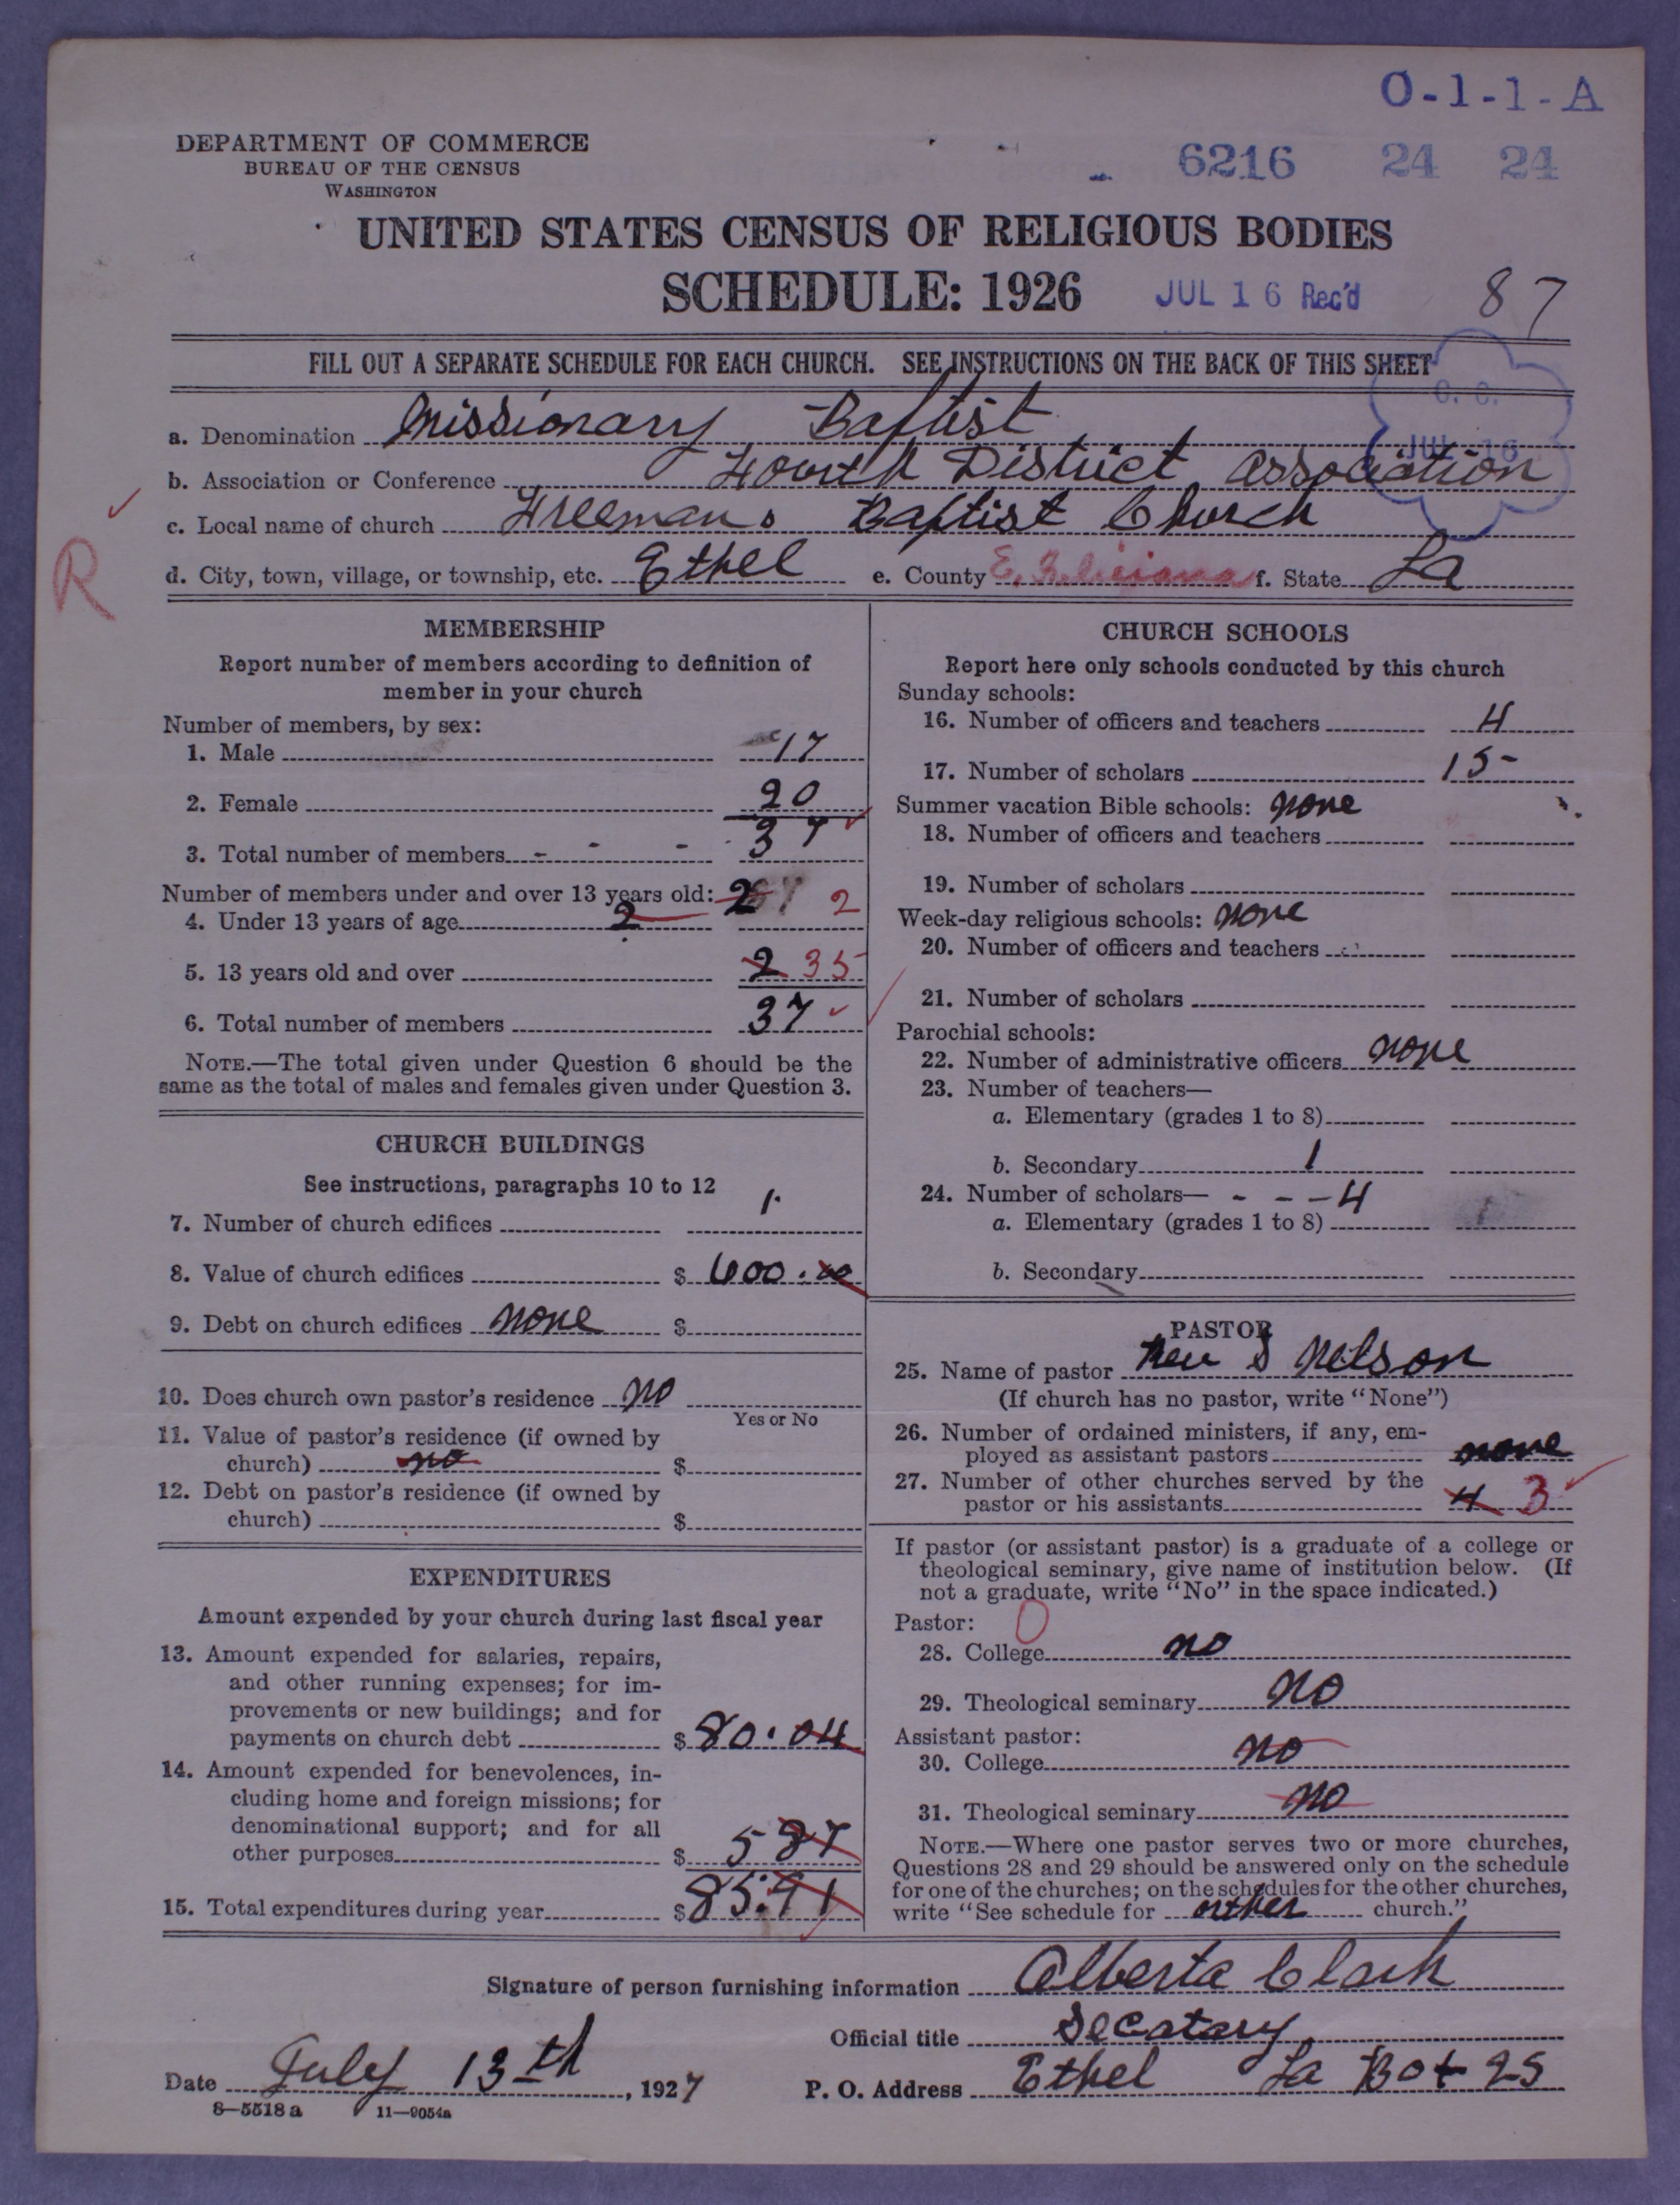 O-1-1-A
DEPARTMENT OF COMMERCE
BUREAU OF THE CENSUS
WASHINGTON
6216 24 24
UNITED STATES CENSUS OF RELIGIOUS BODIES
SCHEDULE: 1926
JUL 16 Rec'd
87
FILL OUT A SEPARATE SCHEDULE FOR EACH CHURCH. SEE INSTRUCTIONS ON THE BACK OF THIS SHEET
C. C.
JUL 16
a. Denomination Missionary Baptist
b. Association or Conference Fourth District association
c. Local name of church Freemans Baptist Church
R
d. City, town, village, or township, etc. Ethel e. County E. Feliciana f. State La
MEMBERSHIP
Report number of members according to definition of
member in your church
Number of members, by sex:
1. Male 17
2. Female 20
3. Total number of members 37
Number of members under and over 13 years old: 2
4. Under 13 years of age 2 2
5. 13 years old and over 2 35
6. Total number of members 37
NOTE.—The total given under Question 6 should be the
same as the total of males and females given under Question 3.
CHURCH BUILDINGS
See instructions, paragraphs 10 to 12
7. Number of church edifices 1
8. Value of church edifices $ 600.00
9. Debt on church edifices none $
10. Does church own pastor's residence no
Yes or No
11. Value of pastor's residence (if owned by
church) no $
12. Debt on pastor's residence (if owned by
church) $
EXPENDITURES
Amount expended by your church during last fiscal year
13. Amount expended for salaries, repairs,
and other running expenses; for im-
provements or new buildings; and for
payments on church debt $ 80.04
14. Amount expended for benevolences, in-
cluding home and foreign missions; for
denominational support; and for all
other purposes $ 5 87
15. Total expenditures during year $ 85.91
CHURCH SCHOOLS
Report here only schools conducted by this church
Sunday schools:
16. Number of officers and teachers 4
17. Number of scholars 15
Summer vacation Bible schools: none
18. Number of officers and teachers
19. Number of scholars
Week-day religious schools: none
20. Number of officers and teachers
21. Number of scholars
Parochial schools:
22. Number of administrative officers none
23. Number of teachers—
a. Elementary (grades 1 to 8)
b. Secondary 1
24. Number of scholars— - - - 4
a. Elementary (grades 1 to 8)
b. Secondary
PASTOR
25. Name of pastor Rev S Nelson
(If church has no pastor, write "None")
26. Number of ordained ministers, if any, em-
ployed as assistant pastors none
27. Number of other churches served by the
pastor or his assistants 4 3
If pastor (or assistant pastor) is a graduate of a college or
theological seminary, give name of institution below. (If
not a graduate, write "No" in the space indicated.)
Pastor: 0
28. College no
29. Theological seminary no
Assistant pastor:
30. College no
31. Theological seminary no
NOTE.—Where one pastor serves two or more churches,
Questions 28 and 29 should be answered only on the schedule
for one of the churches; on the schedules for the other churches,
write "See schedule for orther church."
Signature of person furnishing information Alberta Clark
Official title Secatary
Date July 13th, 1927 P. O. Address Ethel La Box 25
8—5518a 11—9054a